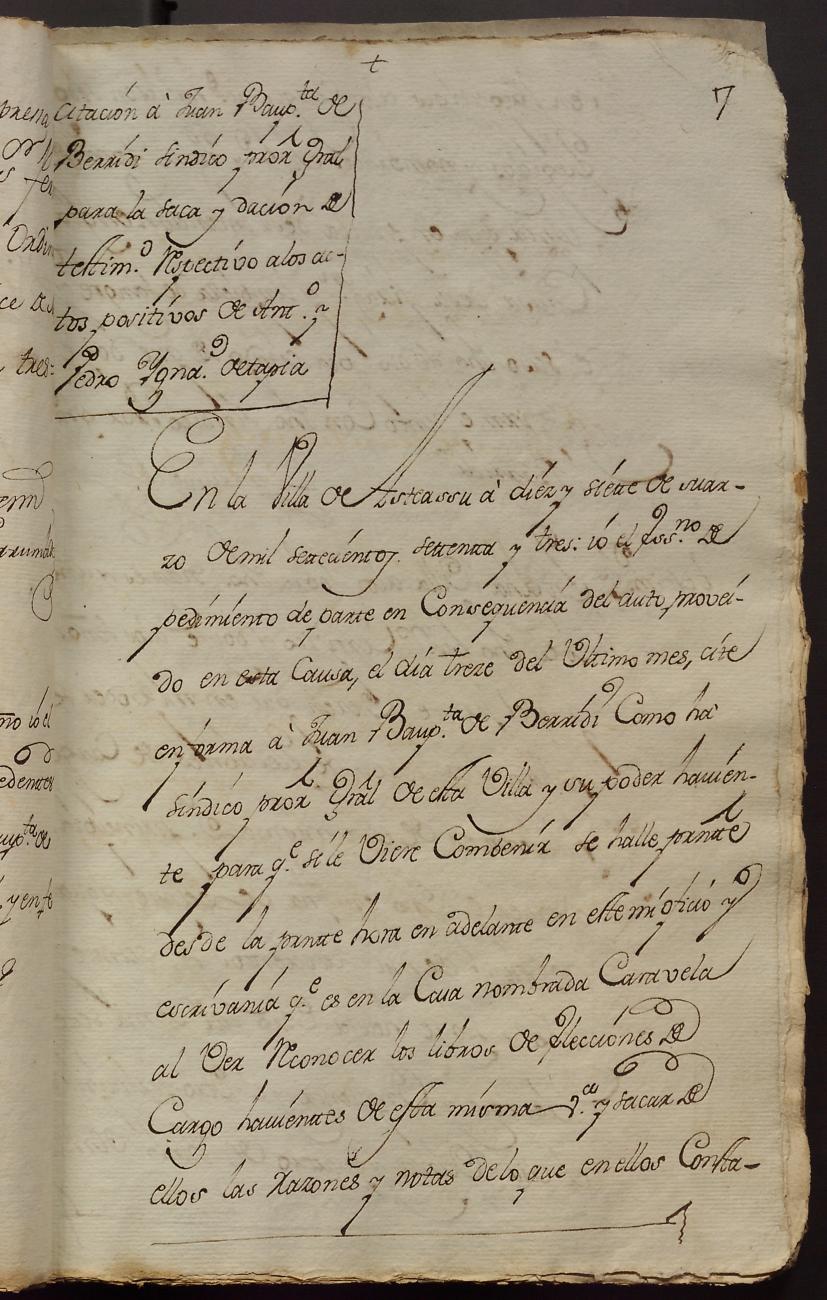 +
7
Citación à Juan Baup.ta de
Berridi sindico pror Gral
para la saca y dación de
testim.o Respectivo a los ac-
tos positivos de Ant.o y
Pedro Ygna.o de tapia
En la Villa de Asteassu à diez y siete de mar-
zo de mil setecientos settenta y tres: io el Ess.no de
pedimiento de parte en Consequencia del auto provei-
do en esta Causa, el dia treze del Ultimo mes, cite
en forma à Juan Baup.ta de Berridi Como hà
sindico pror Gral de esta Villa y su poder havien-
te para q.e si le Viere Combenir se halle prnte
desde la prnte hora en adelante en este mi oficio y
escrivania q.e es en la Casa nombrada Caravela
al Ver Reconocer los libros de Elecciones de
Cargo havientes de esta misma v.a y sacar de
ellos las Razones y notas de lo que en ellos Consta-